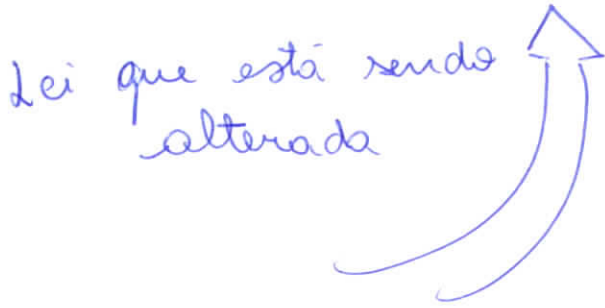 Lei que está sendo
alterada